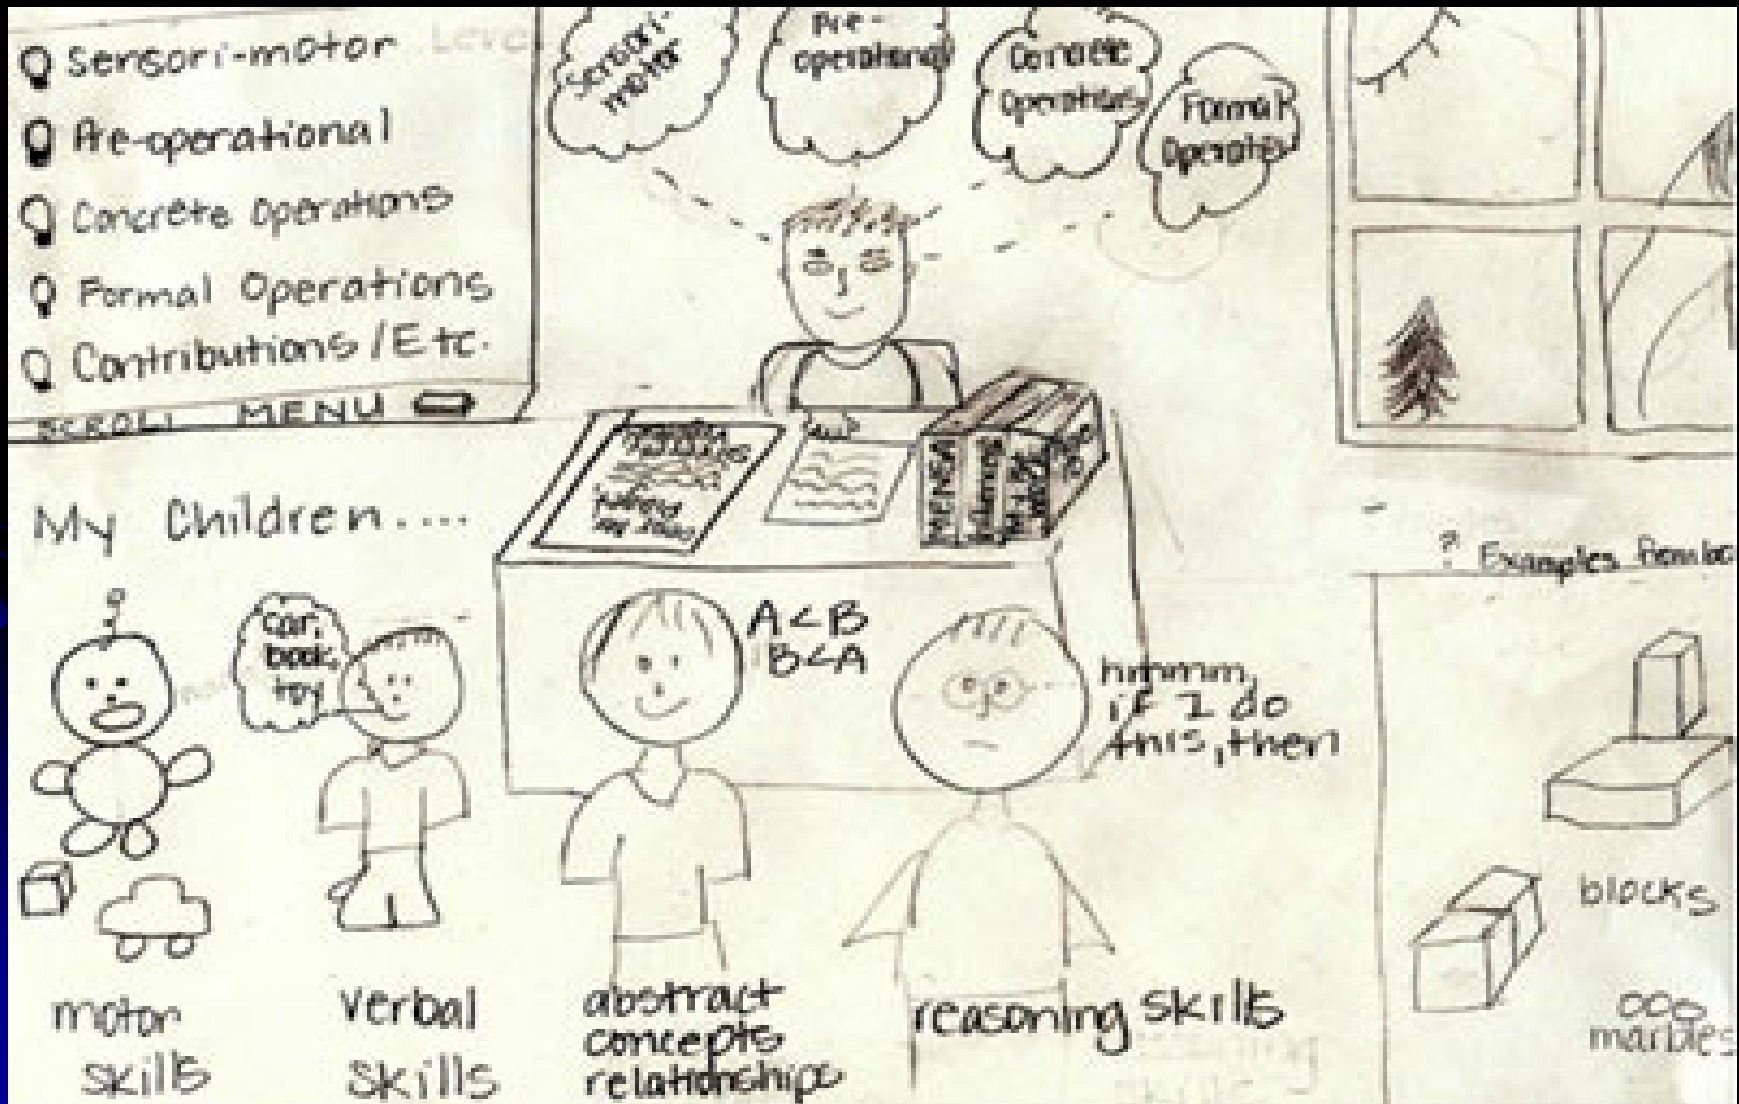 Sensori-motor
Pre-operational
Concrete Operations
Formal Operations
Contributions/Etc.
SCROLL MENU
Leve
Sensori-
motor
Pre-
operational
Concrete
Operations
Formal
Operatio
MENSA
My Children.....
? Examples
car,
book,
toy
A<B
B<A
hmmm,
if I do
this, then
motor
skills
verbal
skills
abstract
concepts
relationships
reasoning skills
blocks
marbles